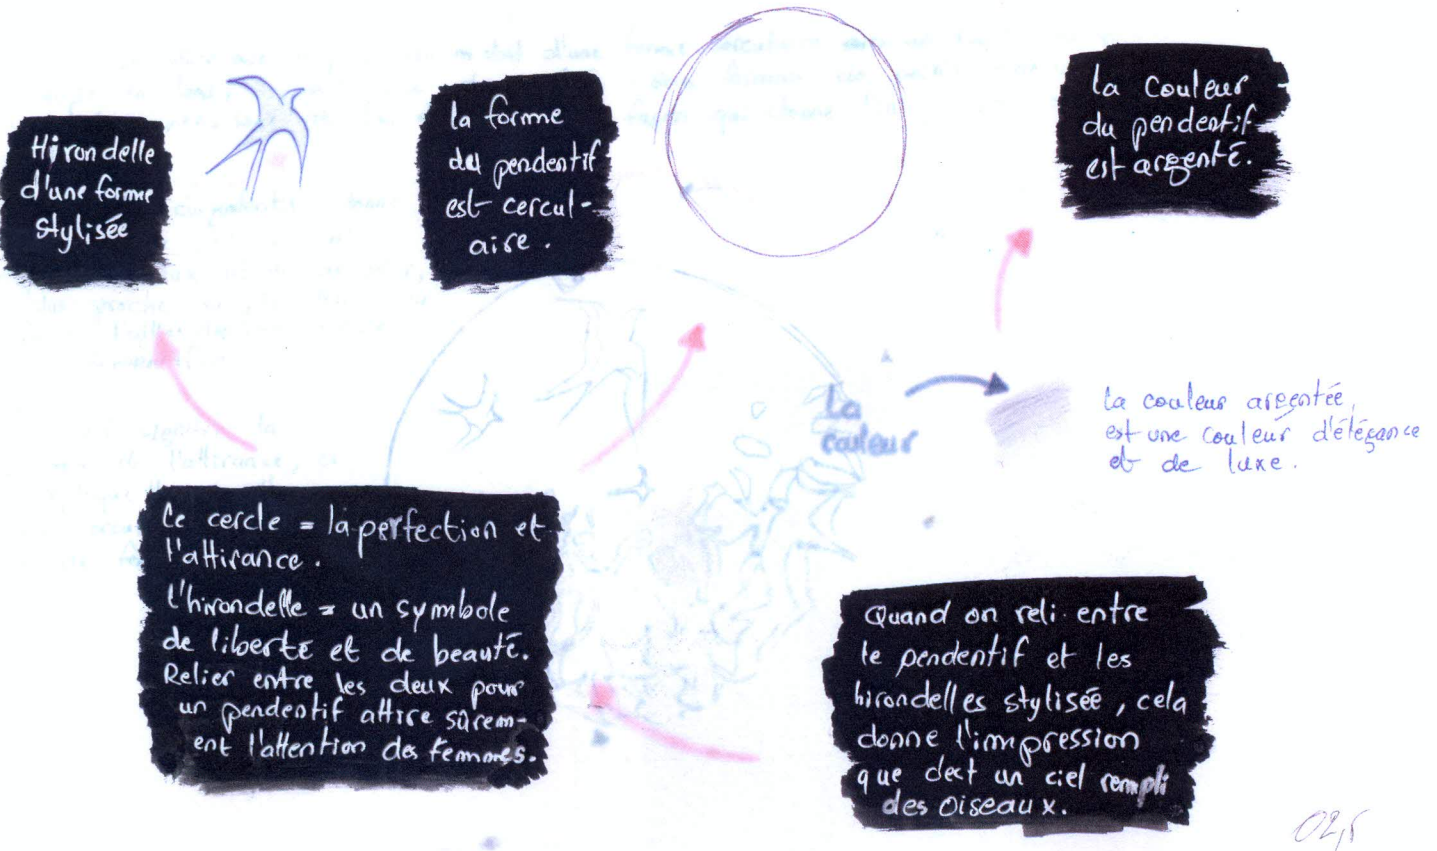 Hirondelle
d'une forme
stylisée
la forme
du pendentif
est cercul-
aire.
la couleur
du pendentif
est argenté.
La
couleur
la couleur argentée,
est une couleur d'élégance
et de luxe.
Ce cercle = la perfection et
l'attirance.
l'hirondelle = un symbole
de liberté et de beauté.
Relier entre les deux pour
un pendentif attire sûrem-
ent l'attention des femmes.
Quand on reli entre
le pendentif et les
hirondelles stylisée, cela
donne l'impression
que un ciel rempli
des oiseaux.
02,5